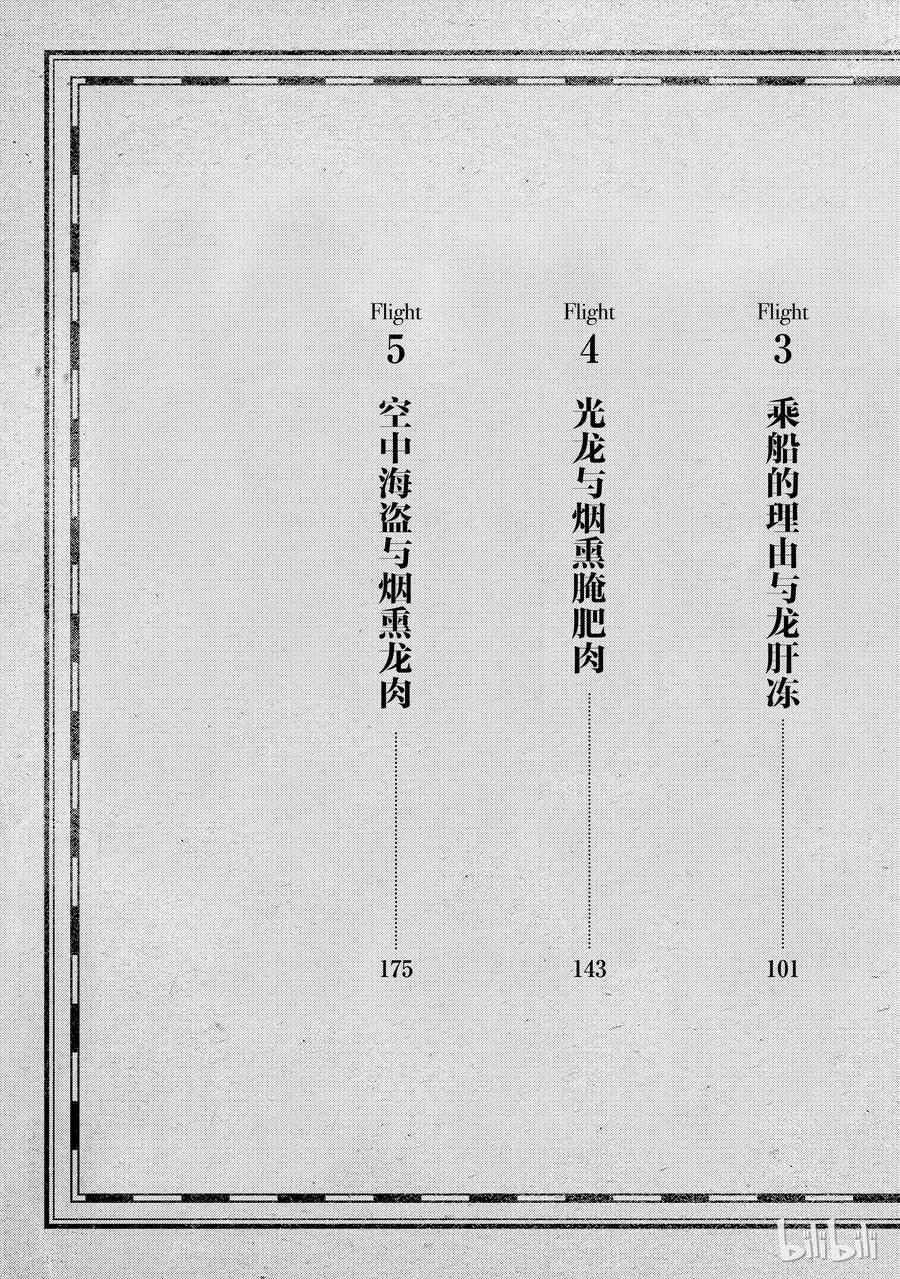 Flight
3
乘船的理由与龙肝冻
101
Flight
4
光龙与烟熏腌肥肉
143
Flight
5
空中海盗与烟熏龙肉
175
bilibili